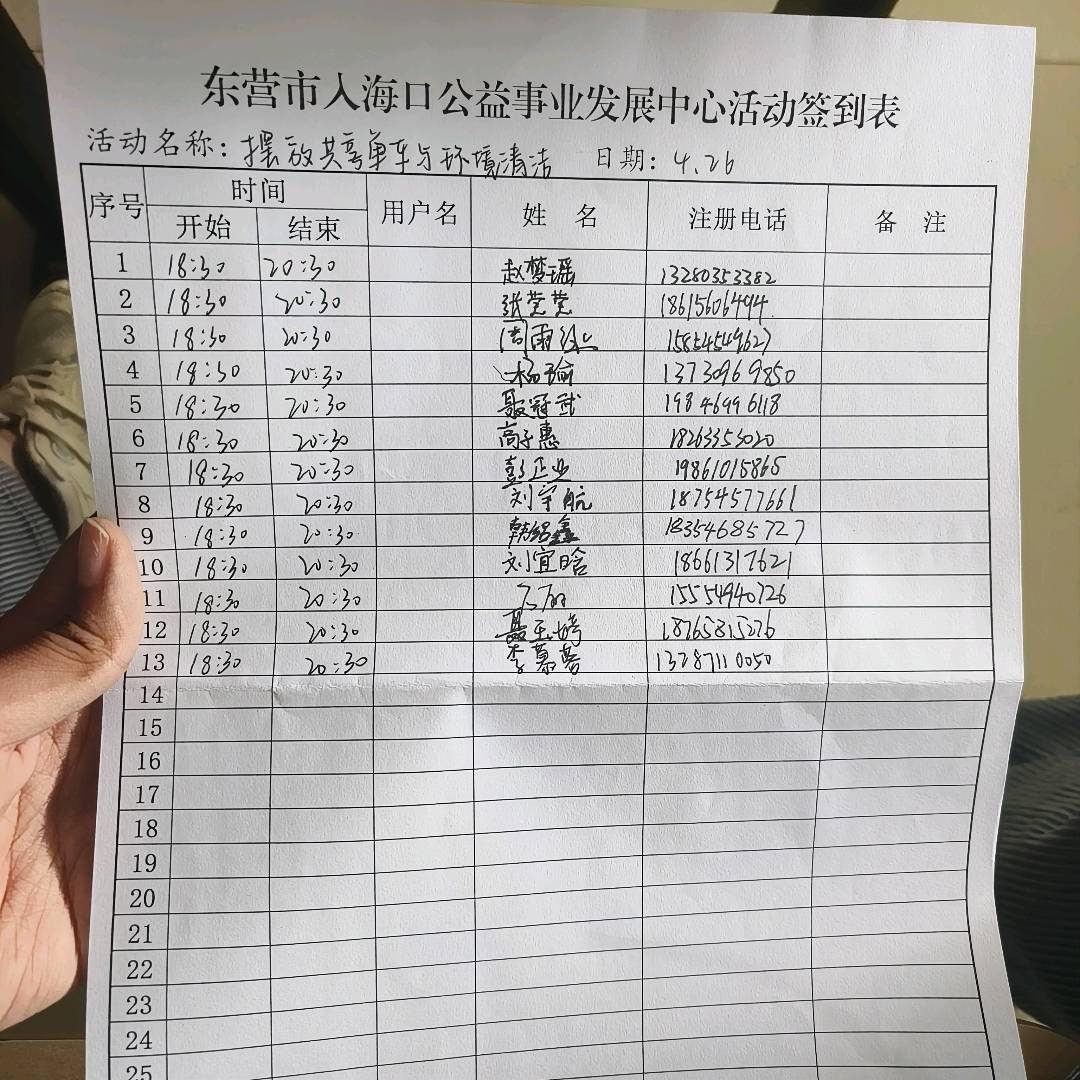 东营市入海口公益事业发展中心活动签到表
活动名称：摆放共享单车与环境清洁 日期：4.26
序号 时间 用户名 姓 名 注册电话 备 注
开始 结束
1 18:30 20:30 赵梦瑶 13280353382
2 18:30 20:30 张莞莞 18615606494
3 18:30 20:30 周雨 15854549627
4 18:30 20:30 杨瑜 13730969850
5 18:30 20:30 聂冠武 19846996118
6 18:30 20:30 高子惠 18263353020
7 18:30 20:30 彭正业 19861015865
8 18:30 20:30 刘宇航 18754577661
9 18:30 20:30 韩绍鑫 18354685727
10 18:30 20:30 刘宜晗 18661317621
11 18:30 20:30 15554940726
12 18:30 20:30 聂玉娉 18765815276
13 18:30 20:30 李慕蓉 13287110050
14
15
16
17
18
19
20
21
22
23
24
25